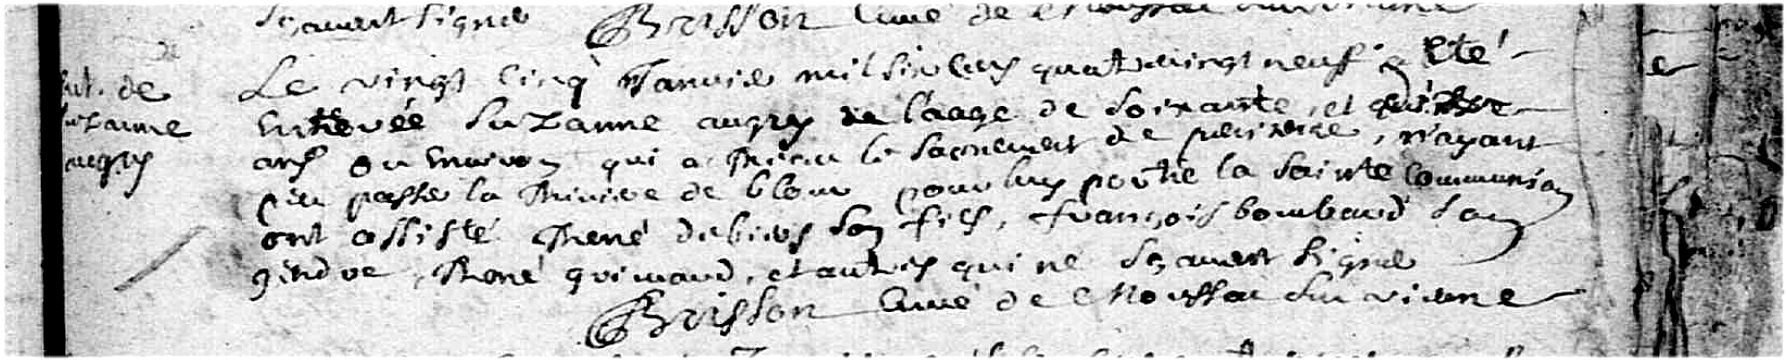 sçavent signé Brisson Curé de Moussac sur vienne
Ent. de
suzanne
augry
Le vingt cinq Janvie mil six cens quatrevingt neuf a esté
Enterrée Suzanne augry de l'aage de soixante et quinze
ans ou Environ qui a Receu le sacrement de penitence, n'ayant
peu passer la Riviere de blour pour luy porter la sainte Communion
ont assisté René dubius son fils, françois bombaud son
gendre, René guimaud, et autres qui ne sçavent signé
Brisson Curé de Moussac sur vienne